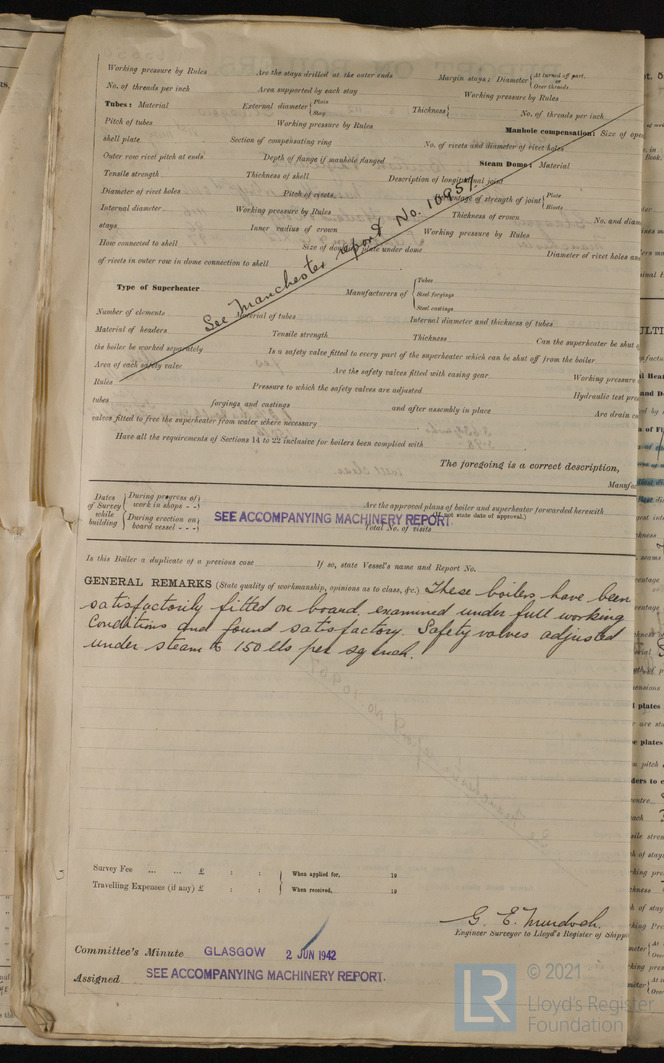 Working pressure by Rules Are the stays drilled at the outer ends Margin stays: Diameter { At turned off part, or Over threads
No. of threads per inch Area supported by each stay Working pressure by Rules
Tubes: Material External diameter { Plain Stay Thickness { No. of threads per inch
Pitch of tubes Working pressure by Rules Manhole compensation: Size of ope
shell plate Section of compensating ring No. of rivets and diameter of rivet holes
Outer row rivet pitch at ends Depth of flange if manhole flanged Steam Dome: Material
Tensile strength Thickness of shell Description of longitudinal joint
Diameter of rivet holes Pitch of rivets Percentage of strength of joint { Plate Rivets
Internal diameter Working pressure by Rules Thickness of crown No. and diam
stays Inner radius of crown Working pressure by Rules
How connected to shell Size of doubling plate under dome Diameter of rivet holes an
of rivets in outer row in dome connection to shell
See Manchester report No. 10957.
Type of Superheater Manufacturers of { Tubes Steel forgings Steel castings
Number of elements Material of tubes Internal diameter and thickness of tubes
Material of headers Tensile strength Thickness Can the superheater be shut o
the boiler be worked separately Is a safety valve fitted to every part of the superheater which can be shut off from the boiler
Area of each safety valve Are the safety valves fitted with easing gear Working pressure
Rules Pressure to which the safety valves are adjusted Hydraulic test pre
tubes forgings and castings and after assembly in place Are drain c
valves fitted to free the superheater from water where necessary
Have all the requirements of Sections 14 to 22 inclusive for boilers been complied with
The foregoing is a correct description,
Manufa
Dates of Survey while building { During progress of work in shops - - During erection on board vessel - - - } SEE ACCOMPANYING MACHINERY REPORT.
Are the approved plans of boiler and superheater forwarded herewith
(If not state date of approval.)
Total No. of visits
Is this Boiler a duplicate of a previous case If so, state Vessel's name and Report No.
GENERAL REMARKS (State quality of workmanship, opinions as to class, &c.) These boilers have been
satisfactorily fitted on board, examined under full working
conditions and found satisfactory. Safety valves adjusted
under steam to 150 lbs per sq inch.
Survey Fee ... ... £ : : When applied for, 19
Travelling Expenses (if any) £ : : When received, 19
G. E. Murdoch.
Engineer Surveyor to Lloyd's Register of Shipp
Committee's Minute GLASGOW 2 JUN 1942
Assigned SEE ACCOMPANYING MACHINERY REPORT.
LR © 2021
Lloyd's Register
Foundation